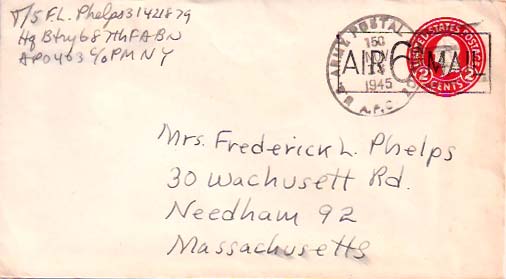 T/5 F.L. Phelps 31421879
Hq Btry 687th F A BN
APO 463 c/o PM NY
U.S. ARMY POSTAL
150
NOV
1945
A.P.O.
AIR 6 MAIL
UNITED STATES POSTAGE
2 CENTS 2
Mrs. Frederick L. Phelps
30 Wachusett Rd.
Needham 92
Massachusetts